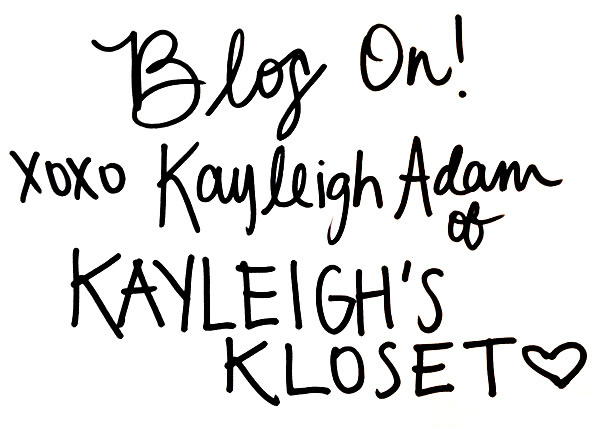 Blog On!
xoxo Kayleigh Adam
of
KAYLEIGH'S
KLOSET♡